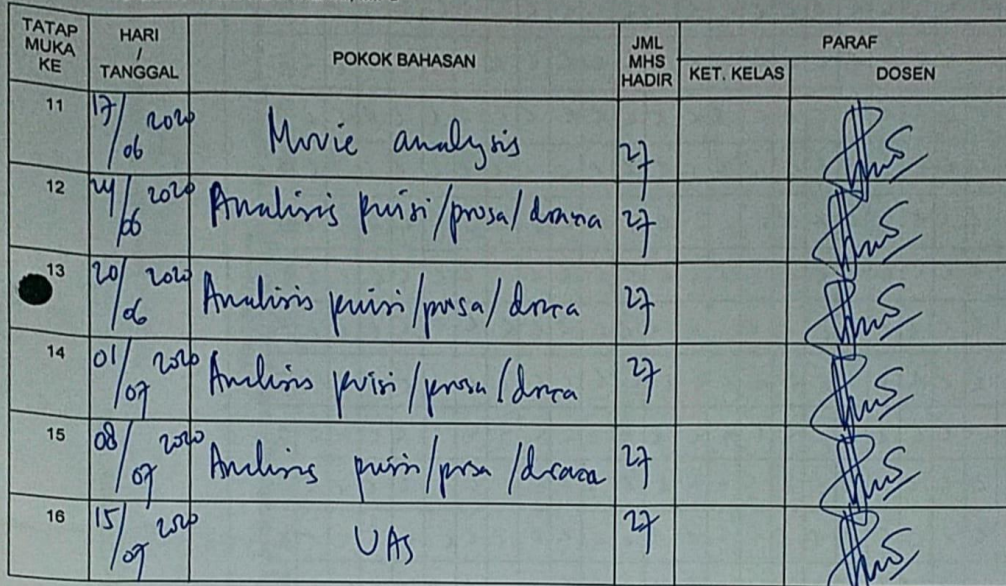 TATAP MUKA KE HARI / TANGGAL POKOK BAHASAN JML MHS HADIR PARAF
KET. KELAS DOSEN
11 17/06 2020 Movie analysis 27
12 24/06 2020 Analisis puisi/prosa/drama 27
13 20/06 2020 Analisis puisi/prosa/drama 27
14 01/07 2020 Analisis puisi/prosa/drama 27
15 08/07 2020 Analisis puisi/prosa/drama 27
16 15/07 2020 UAS 27